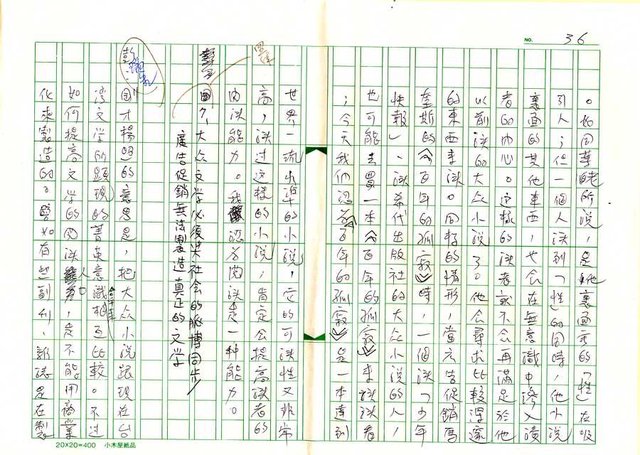 NO. 36
。如同華老所說，是它裏面寫的「性」在吸
引人；但一個人讀到「性」的同時，他小說
裏面的其他東西，也會在無意識中滲入讀
者的內心。這樣的讀者或不會再滿足於他
以前讀的大众小說了。他会尋求比較深邃
的東西來讀。同樣的情形，當广告促銷馬
奎斯的《百年的孤寂》時，一個讀「少年
快報」、讀希代出版社的大众小說的人，
也可能去買一本《百年的孤寂》來讀讀看
；今天我們認为《百年的孤寂》是一本達到
世界一流水準的小說，它的可讀性又非常
高，讀过這樣的小說，肯定会提高讀者的
閱讀能力。我認为閱讀是一種能力。
國大众文学必須與社会的脈博同步
廣告促銷無法製造真正的文学
國才揚的意思是，把大众小說跟現在台
灣文学所顯現的菁英意識相互比較。不过
如何提高文学的閱讀人力，是不能用商業
化來製造的。譬如有些副刊、雜誌是在製
20×20=400 小木屋紙品